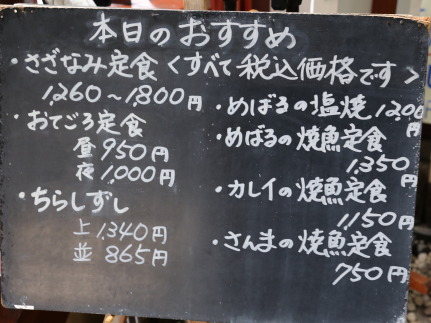 本日のおすすめ
・さざなみ定食 <すべて税込価格です>
1,260〜1,800円
・おてごろ定食
昼 950円
夜 1,000円
・ちらしずし
上 1,340円
並 865円
・めばるの塩焼 1,200円
・めばるの焼魚定食
1,350円
・カレイの焼魚定食
1,150円
・さんまの焼魚定食
750円